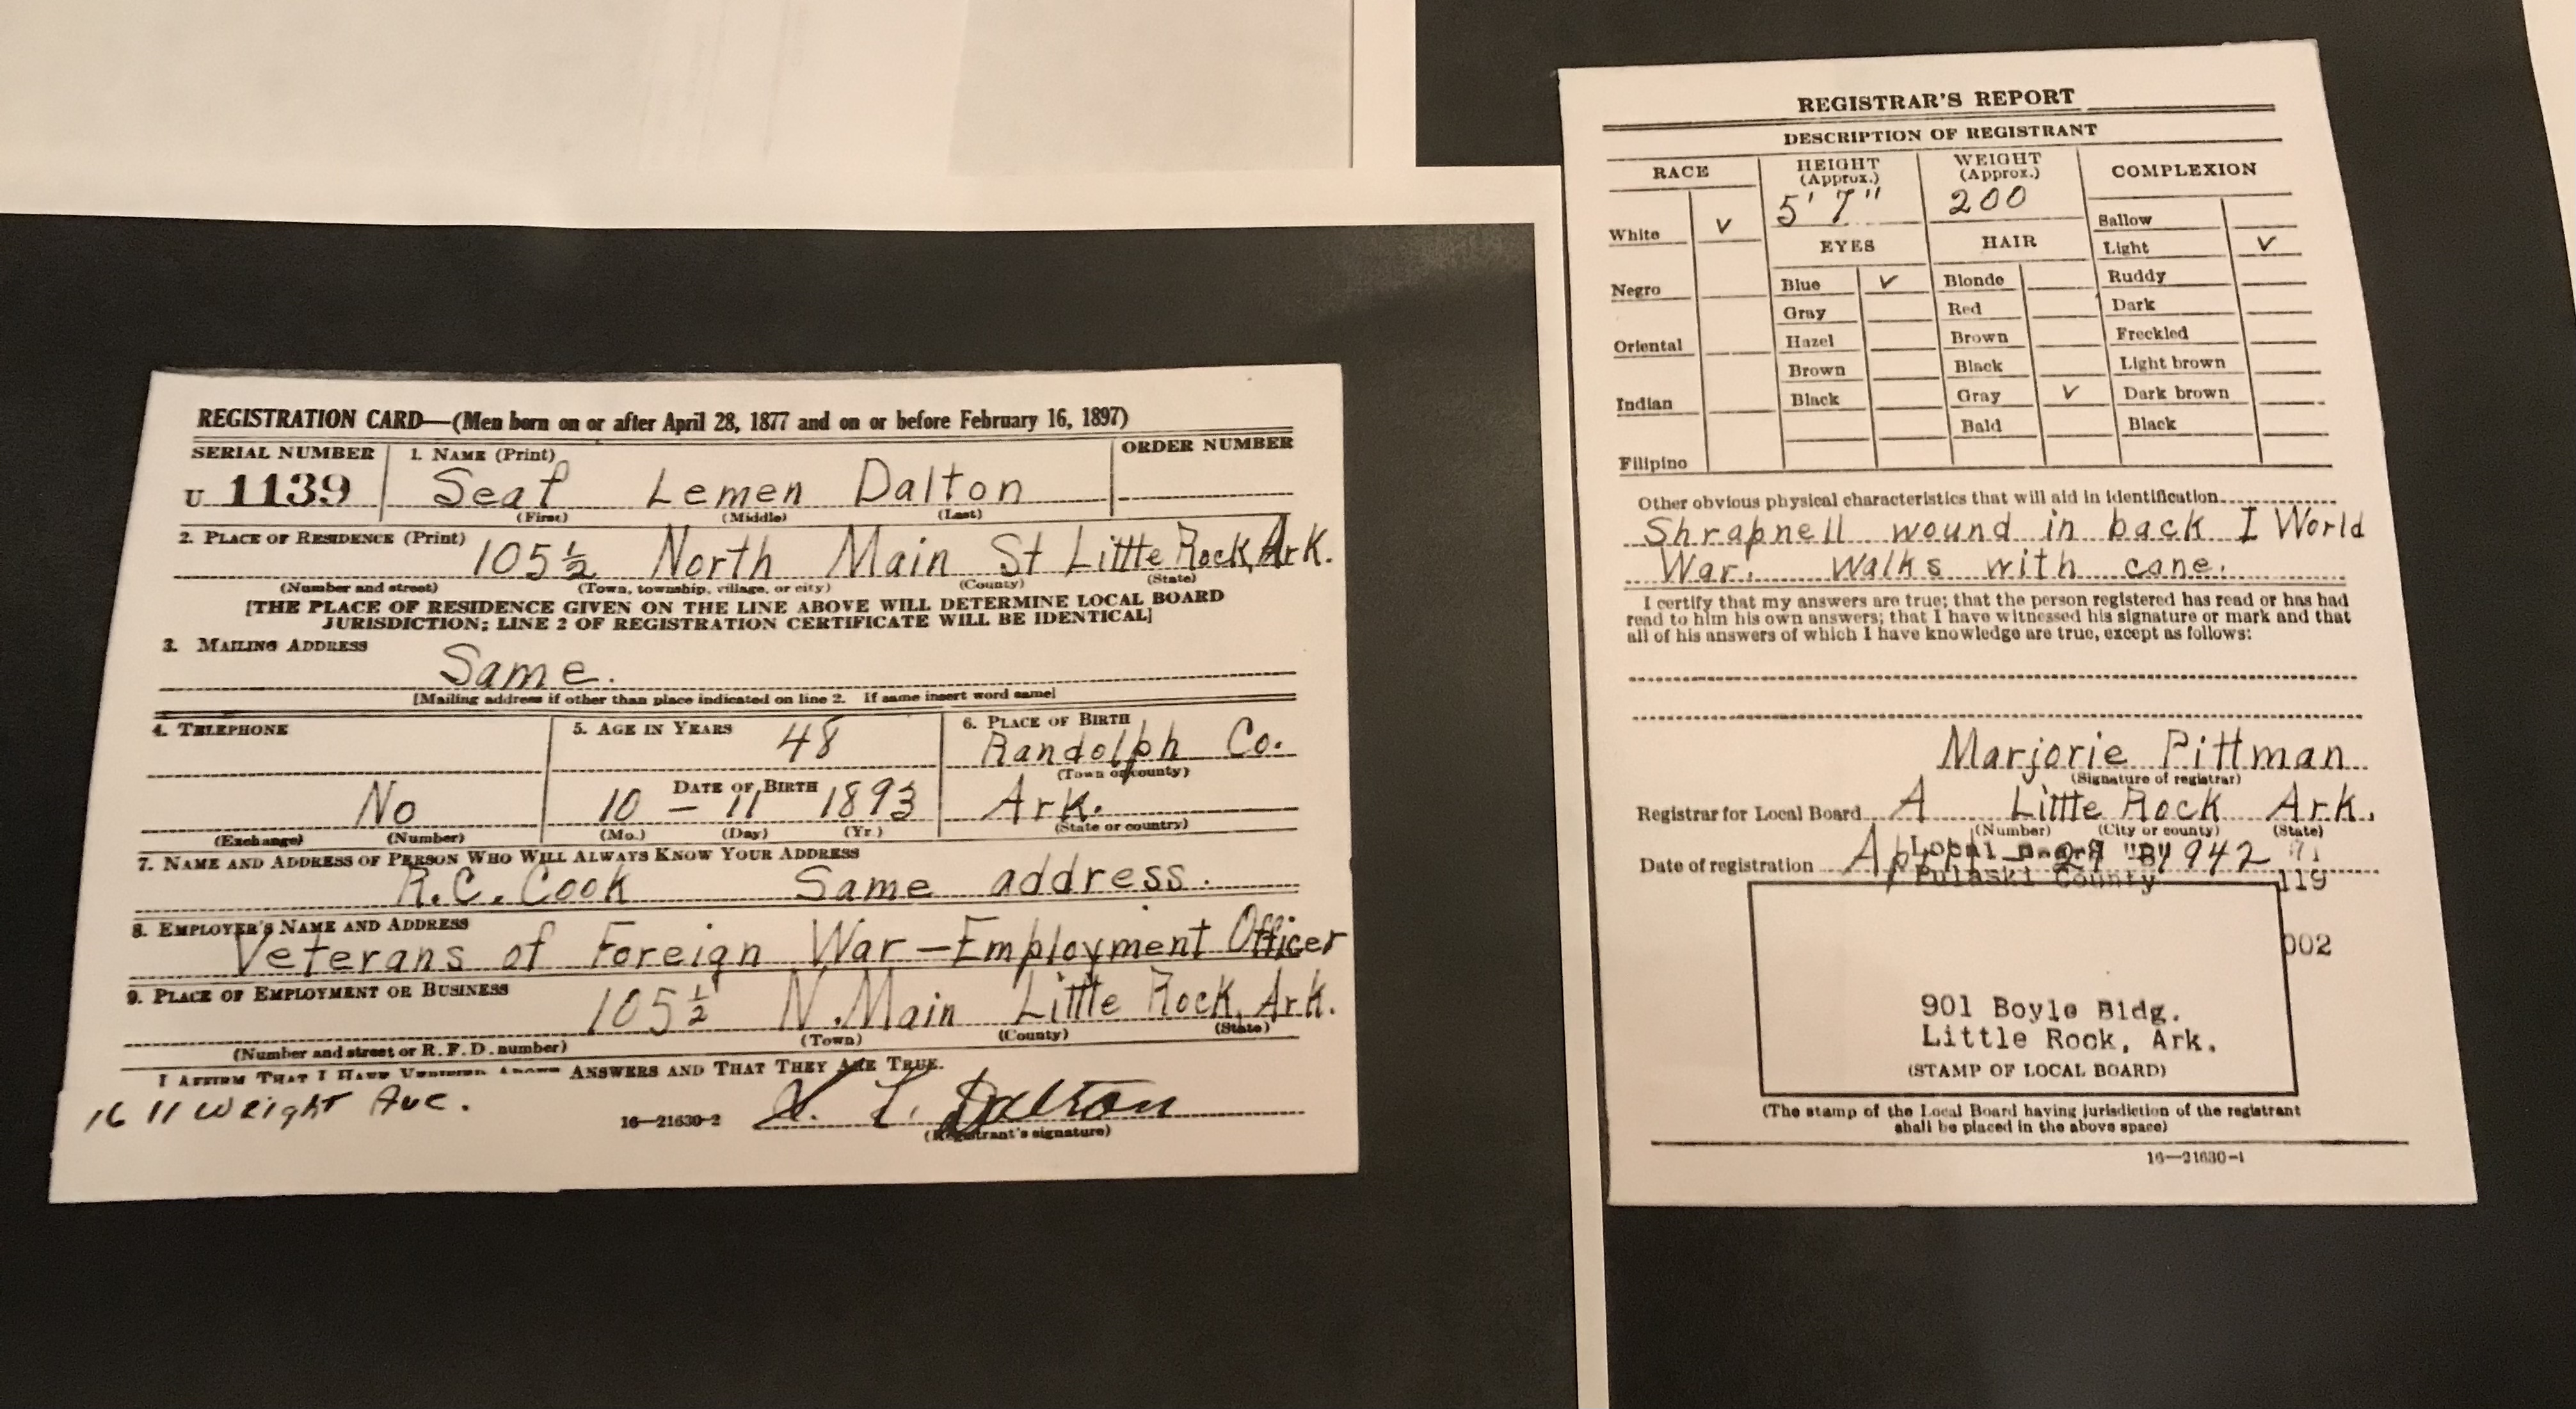 REGISTRATION CARD—(Men born on or after April 28, 1877 and on or before February 16, 1897)
SERIAL NUMBER
1. NAME (Print)
ORDER NUMBER
U 1139
Seat Lemen Dalton
(First) (Middle) (Last)
2. PLACE OF RESIDENCE (Print)
105 ½ North Main St Little Rock, Ark.
(Number and street) (Town, township, village, or city) (County) (State)
[THE PLACE OF RESIDENCE GIVEN ON THE LINE ABOVE WILL DETERMINE LOCAL BOARD
JURISDICTION; LINE 2 OF REGISTRATION CERTIFICATE WILL BE IDENTICAL]
3. MAILING ADDRESS
Same.
[Mailing address if other than place indicated on line 2. If same insert word same]
4. TELEPHONE
No
(Exchange) (Number)
5. AGE IN YEARS
48
DATE OF BIRTH
10 – 11 1893
(Mo.) (Day) (Yr.)
6. PLACE OF BIRTH
Randolph Co.
(Town or county)
Ark.
(State or country)
7. NAME AND ADDRESS OF PERSON WHO WILL ALWAYS KNOW YOUR ADDRESS
R.C. Cook Same address.
8. EMPLOYER'S NAME AND ADDRESS
Veterans of Foreign War—Employment Officer
9. PLACE OF EMPLOYMENT OR BUSINESS
105 ½ N. Main Little Rock, Ark.
(Number and street or R. F. D. number) (Town) (County) (State)
I AFFIRM THAT I HAVE VERIFIED ABOVE ANSWERS AND THAT THEY ARE TRUE.
1611 Wright Ave.
16—21630-2
L. Dalton
(Registrant's signature)
REGISTRAR'S REPORT
DESCRIPTION OF REGISTRANT
RACE
White ✓
Negro
Oriental
Indian
Filipino
HEIGHT
(Approx.)
5' 7"
WEIGHT
(Approx.)
200
EYES
Blue ✓
Gray
Hazel
Brown
Black
HAIR
Blonde
Red
Brown
Black
Gray ✓
Bald
COMPLEXION
Sallow
Light ✓
Ruddy
Dark
Freckled
Light brown
Dark brown
Black
Other obvious physical characteristics that will aid in identification
Shrapnell wound in back I World
War. Walks with cane.
I certify that my answers are true; that the person registered has read or has had
read to him his own answers; that I have witnessed his signature or mark and that
all of his answers of which I have knowledge are true, except as follows:
Marjorie Pittman
(Signature of registrar)
Registrar for Local Board A Little Rock Ark.
(Number) (City or county) (State)
Local Board "B"
Date of registration 1942
Pulaski County 119
002
901 Boyle Bldg.
Little Rock, Ark.
(STAMP OF LOCAL BOARD)
(The stamp of the Local Board having jurisdiction of the registrant
shall be placed in the above space)
16—21630-1